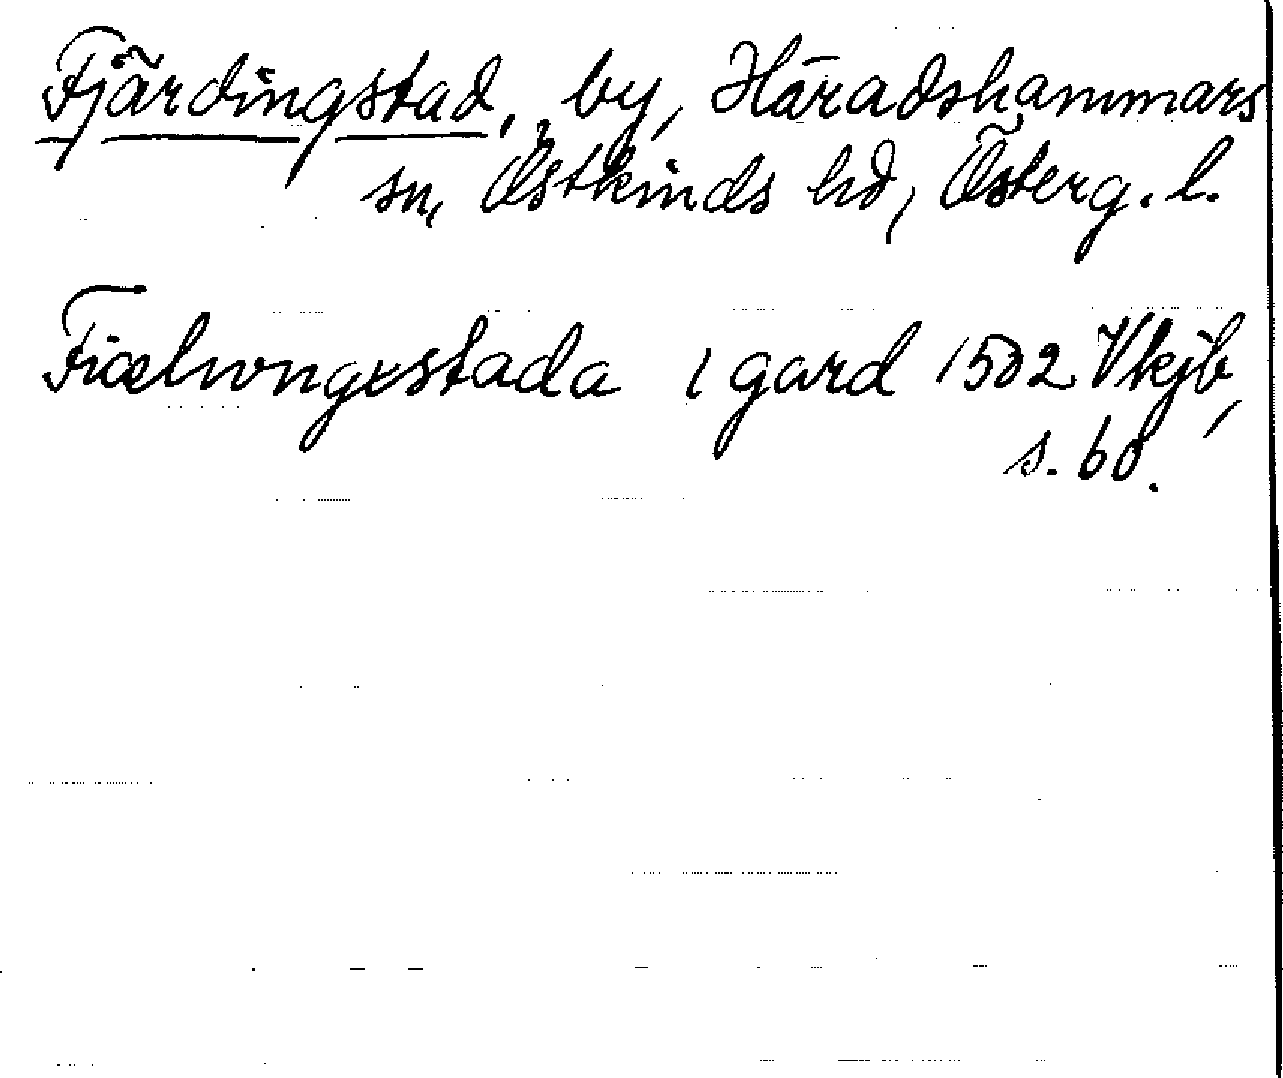 Fjärdingstad, by, Häradshammars
sn, Östkinds hd, Österg. l.
Fiælwngxstada 1 gard 1502 Vkjb,
s. 60.